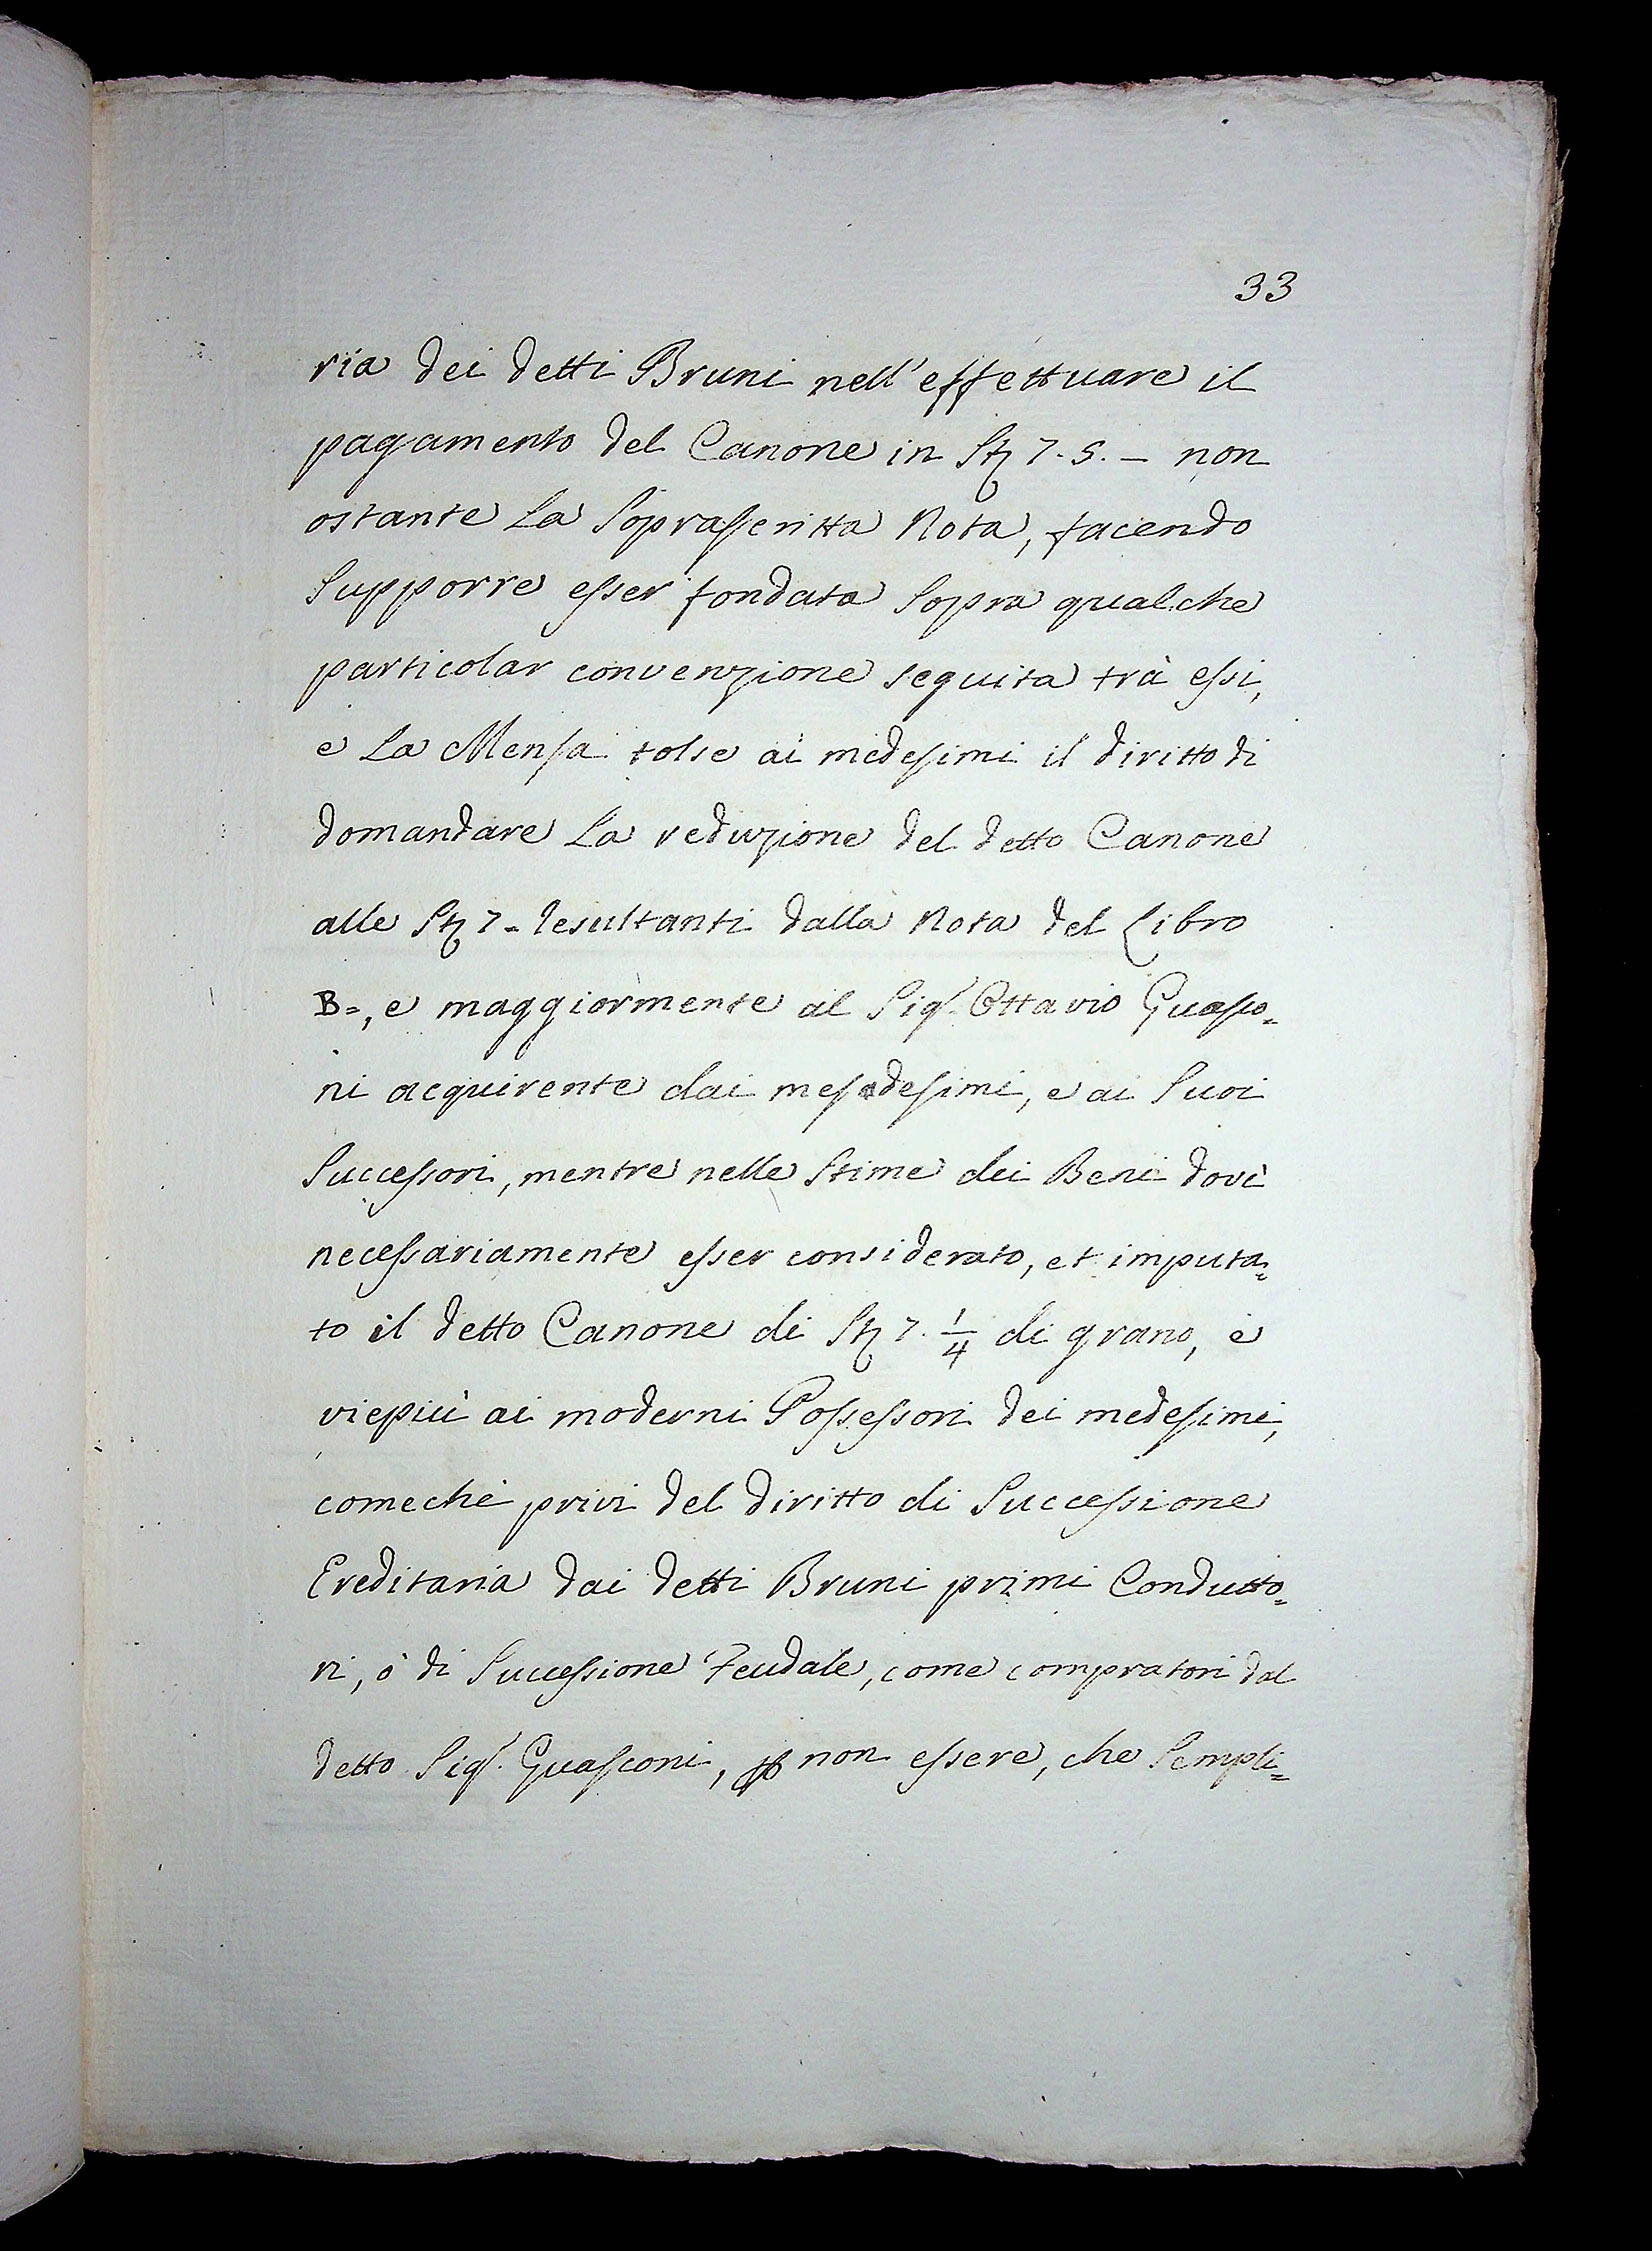 33
ria dei detti Bruni nell'effettuare il
pagamento del Canone in St; 7. 5. – non
ostante La Soprascritta Nota, facendo
Supporre esser fondata Sopra qualche
particolar convenzione seguita trà essi,
e La Mensa tolse ai medesimi il diritto di
domandare La reduzione del detto Canone
alle St; 7 - resultanti dalla Nota del Libro
B=, e maggiormente al Sig.r Ottavio Guasco=
ni acquirente dai mesedesimi, e ai Suoi
Successori, mentre nelle Stime dei Beni dovè
necessariamente esser considerato, et imputa=
to il detto Canone di St; 7. 1/4 di grano, e
viepiù ai moderni Possessori dei medesimi,
comechè privi del diritto di Successione
Ereditaria dai detti Bruni primi Condutto=
ri, ò di Successione Feudale, come compratori dal
detto Sig.r Guasconi, non essere, che Sempli=